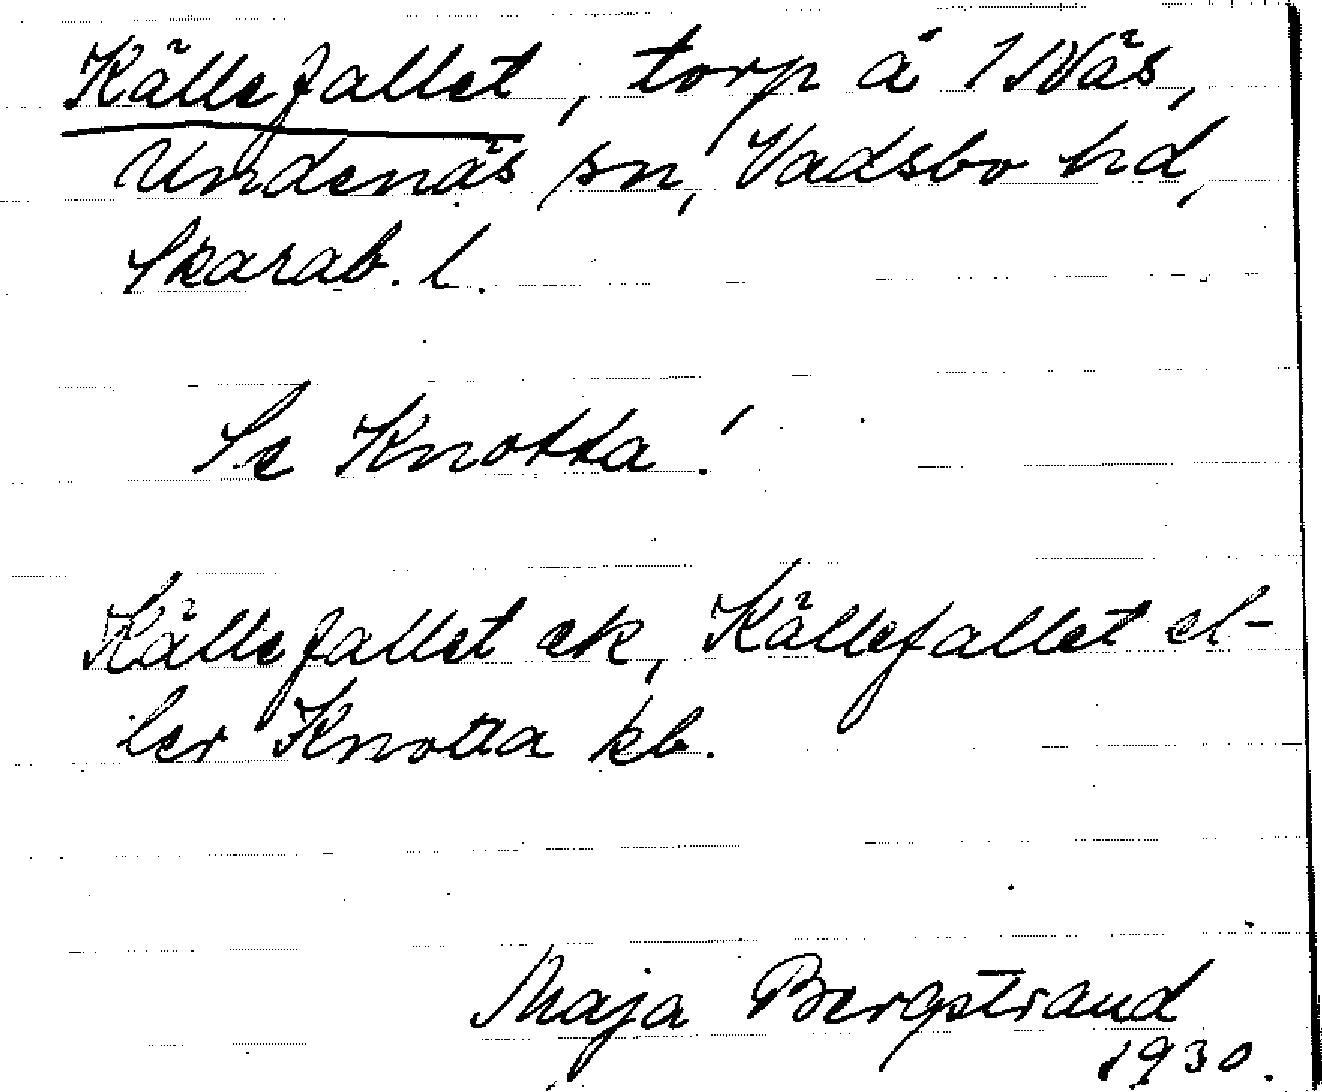 Källefallet, torp å 1 Näs,
Undenäs sn, Vadsbo hd,
Skarab. l.
Se Knotta!
Källefallet ek, Källefallet el-
ler Knotta kb.
Maja Bergstrand
1930.